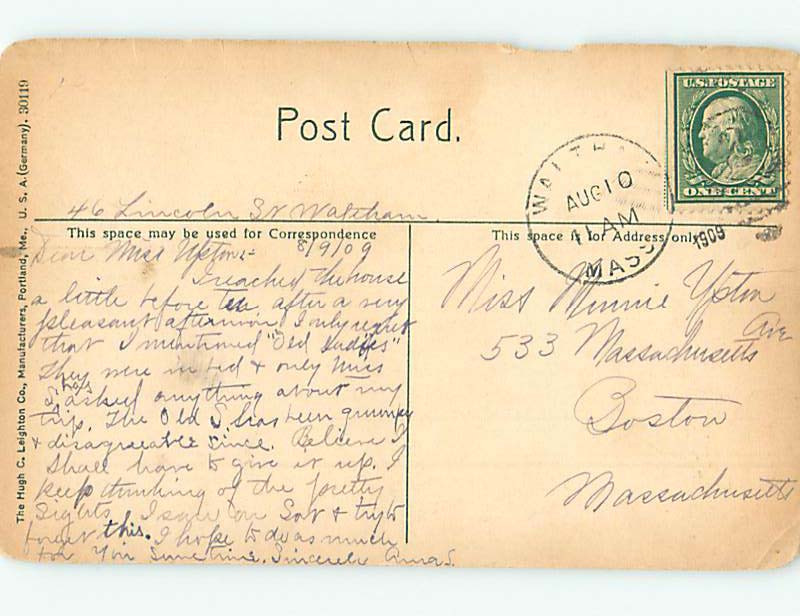 Post Card.
U.S. POSTAGE
ONE CENT
WALTHAM
AUG 10
11 AM
MASS
1909
The Hugh C. Leighton Co., Manufacturers, Portland, Me., U. S. A. (Germany). 30119
46 Lincoln St Waltham
This space may be used for Correspondence
This space is for Address only
Dear Miss Upton:- 8/9/09
I reached the house
a little before ten after a very
pleasant afternoon. I only regret
that I mentioned "Old Ladies"
They were in bed & only Miss
S. has asked anything about my
trip. The Old S. has been grumpy
& disagreeable since. Believe I
shall have to give it up. I
keep thinking of the pretty
sights I saw on Sat & try to
forget this. I hope to do as much
for you sometime. Sincerely Anna S.
Miss Minnie Upton
533 Massachusetts Ave
Boston
Massachusetts